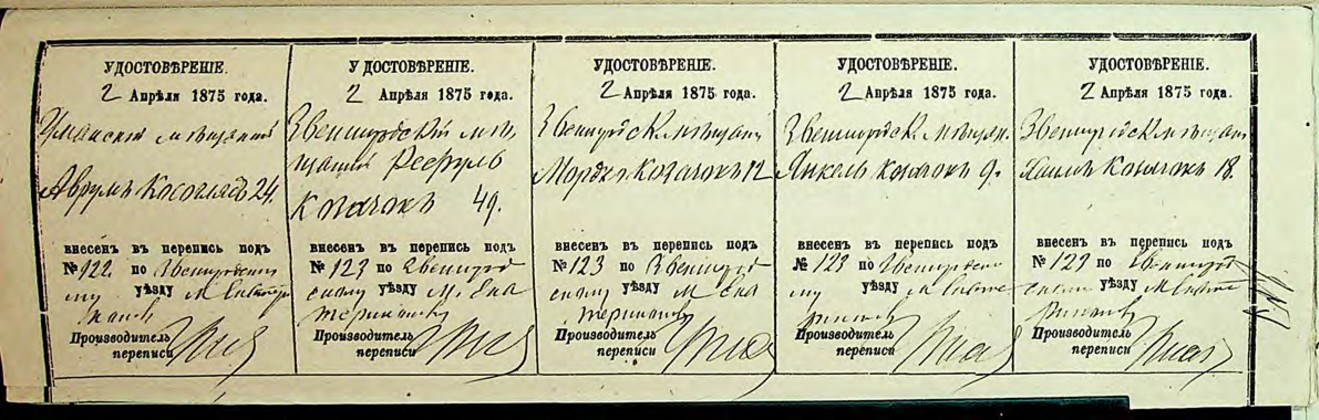 УДОСТОВѢРЕНІЕ.
2 Апрѣля 1875 года.
Уманскій мѣщанинъ
Аврумъ Косоглядъ 24.
внесенъ въ перепись подъ
№ 122 по Звенигородско
му уѣзду М Екатери
Производитель
переписи
УДОСТОВѢРЕНІЕ.
2 Апрѣля 1875 года.
Звенигородскій мѣ
щанинъ
Козачокъ 49.
внесенъ въ перепись подъ
№ 123 по Звенигород
скому уѣзду М. Ека
Производитель
переписи
УДОСТОВѢРЕНІЕ.
2 Апрѣля 1875 года.
Звенигородск. мѣщан
Мордко Козачокъ 12
внесенъ въ перепись подъ
№ 123 по Звенигород
скому уѣзду М Ека
Производитель
переписи
УДОСТОВѢРЕНІЕ.
2 Апрѣля 1875 года.
Звенигородск. мѣщан.
Янкель Козачокъ 9.
внесенъ въ перепись подъ
№ 123 по Звенигородско
му уѣзду М Екате
Производитель
переписи
УДОСТОВѢРЕНІЕ.
2 Апрѣля 1875 года.
Звенигородск. мѣщан
Козачокъ 18.
внесенъ въ перепись подъ
№ 123 по Звенигород
скому уѣзду М Екате
Производитель
переписи